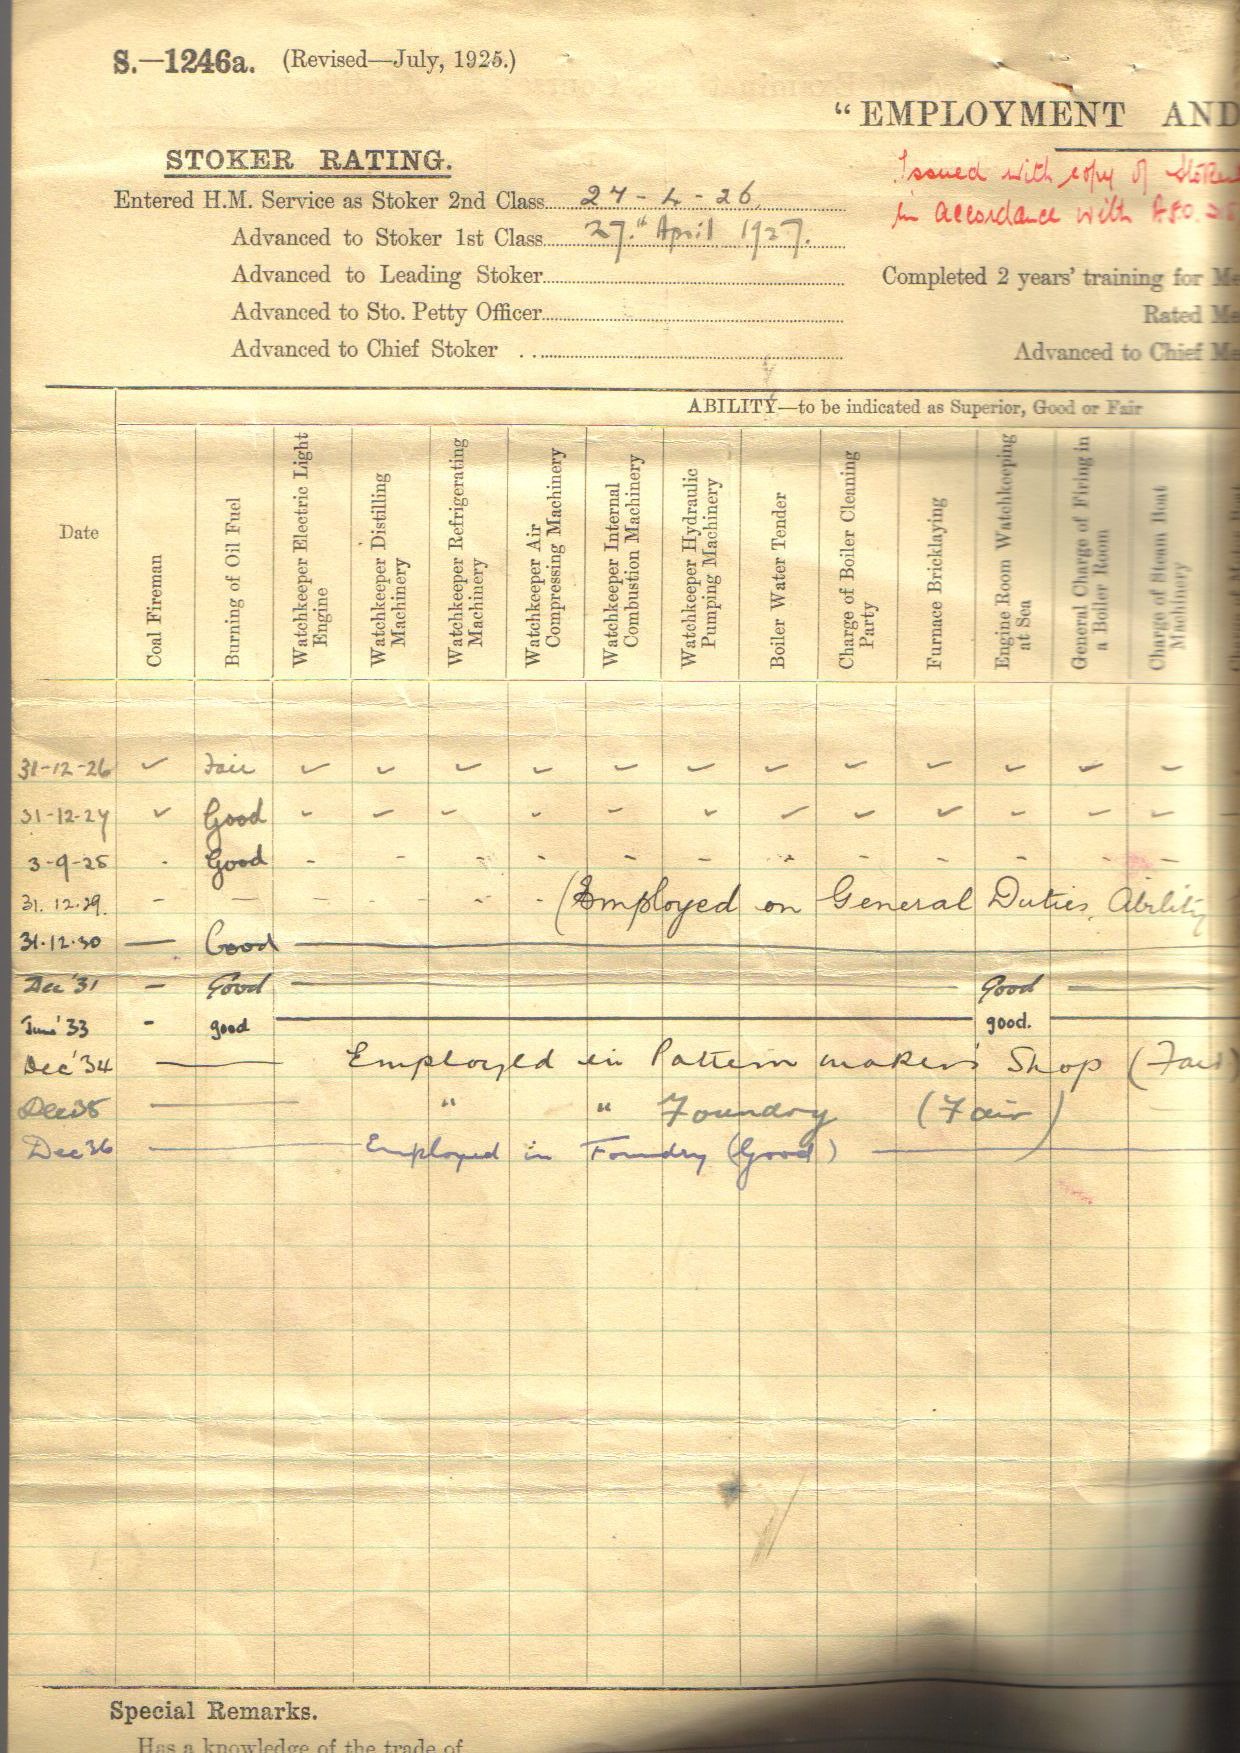 S.—1246a. (Revised—July, 1925.)
"EMPLOYMENT AND
STOKER RATING.
Issued with copy of
in accordance with
Entered H.M. Service as Stoker 2nd Class 27-4-26.
Advanced to Stoker 1st Class 27.th April 1927.
Advanced to Leading Stoker
Completed 2 years' training for Me
Advanced to Sto. Petty Officer
Rated Me
Advanced to Chief Stoker
Advanced to Chief Me
ABILITY—to be indicated as Superior, Good or Fair
Date
Coal Fireman
Burning of Oil Fuel
Watchkeeper Electric Light Engine
Watchkeeper Distilling Machinery
Watchkeeper Refrigerating Machinery
Watchkeeper Air Compressing Machinery
Watchkeeper Internal Combustion Machinery
Watchkeeper Hydraulic Pumping Machinery
Boiler Water Tender
Charge of Boiler Cleaning Party
Furnace Bricklaying
Engine Room Watchkeeping at Sea
General Charge of Firing in a Boiler Room
Charge of Steam Boat Machinery
31-12-26 Fair
31-12-27 Good
3-9-28 - Good
31.12.29. (Employed on General Duties. Ability
31.12.30 — Good
Dec '31 — Good — Good
June '33 - good — good.
Dec '34 — Employed in Pattern makers' Shop (Fair)
Dec 35 — " " Foundry (Fair)
Dec 36 — Employed in Foundry (Good)
Special Remarks.
Has a knowledge of the trade of